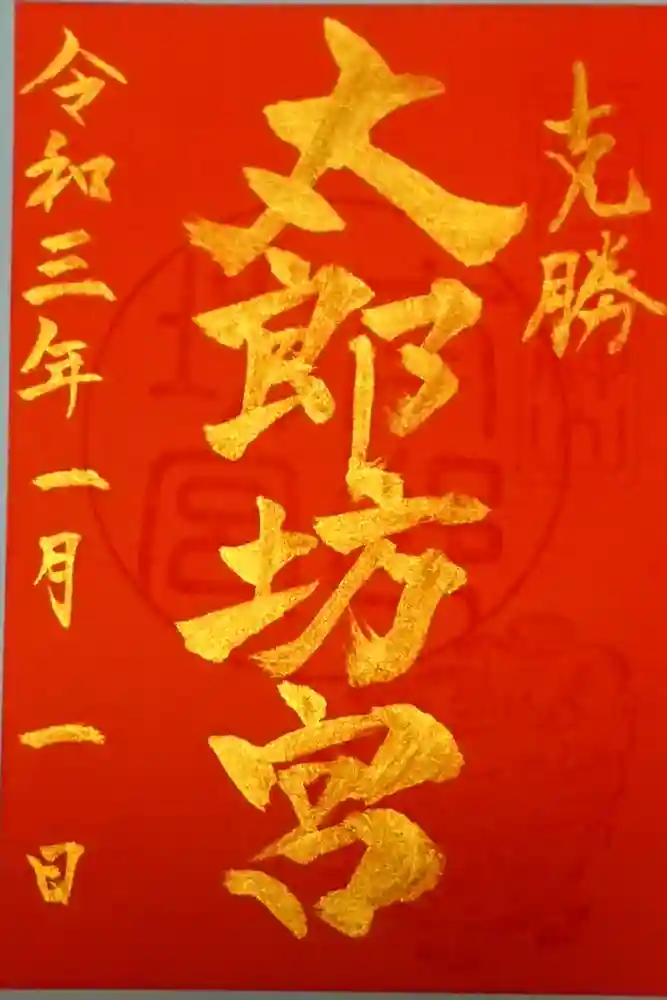 克勝
太郎坊宮
令和三年一月一日